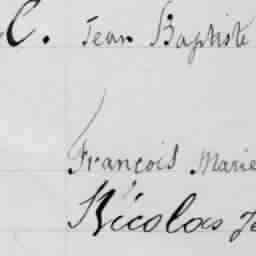 C. Jean Baptiste
François Marie
Nicolas Je